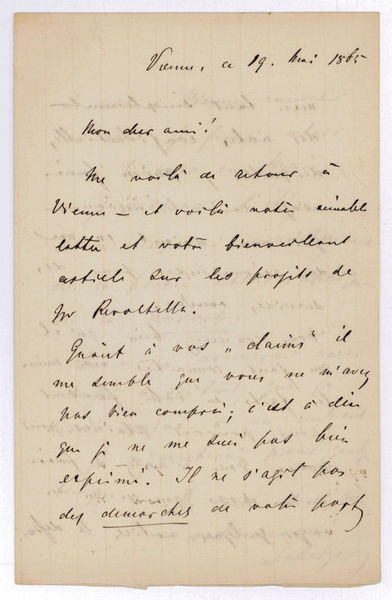 Vienne, ce 19. Mai 1865
Mon cher ami!
Me voilà de retour à
Vienne – et voilà votre aimable
lettre et votre bienveillant
article sur les projets de
Mr Revoltella.
Quant à vos „claims" il
me semble que vous ne m'avez
pas bien compris; c'est à dire
que je ne me suis pas bien
exprimé. Il ne s'agit pas
des démarches de votre part,